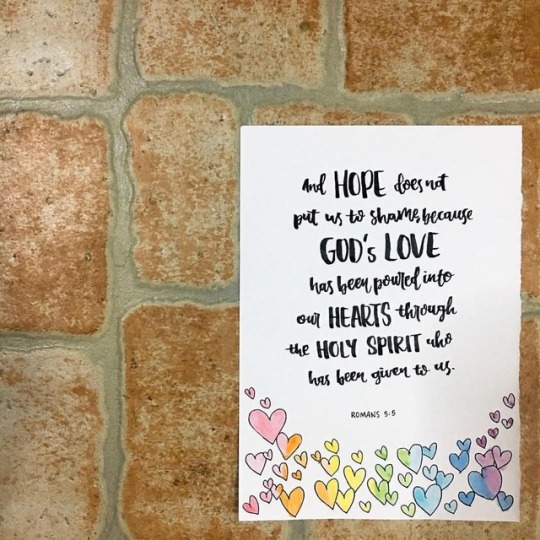 And HOPE does not
put us to shame, because
GOD's LOVE
has been poured into
our HEARTS through
the HOLY SPIRIT who
has been given to us.
ROMANS 5:5